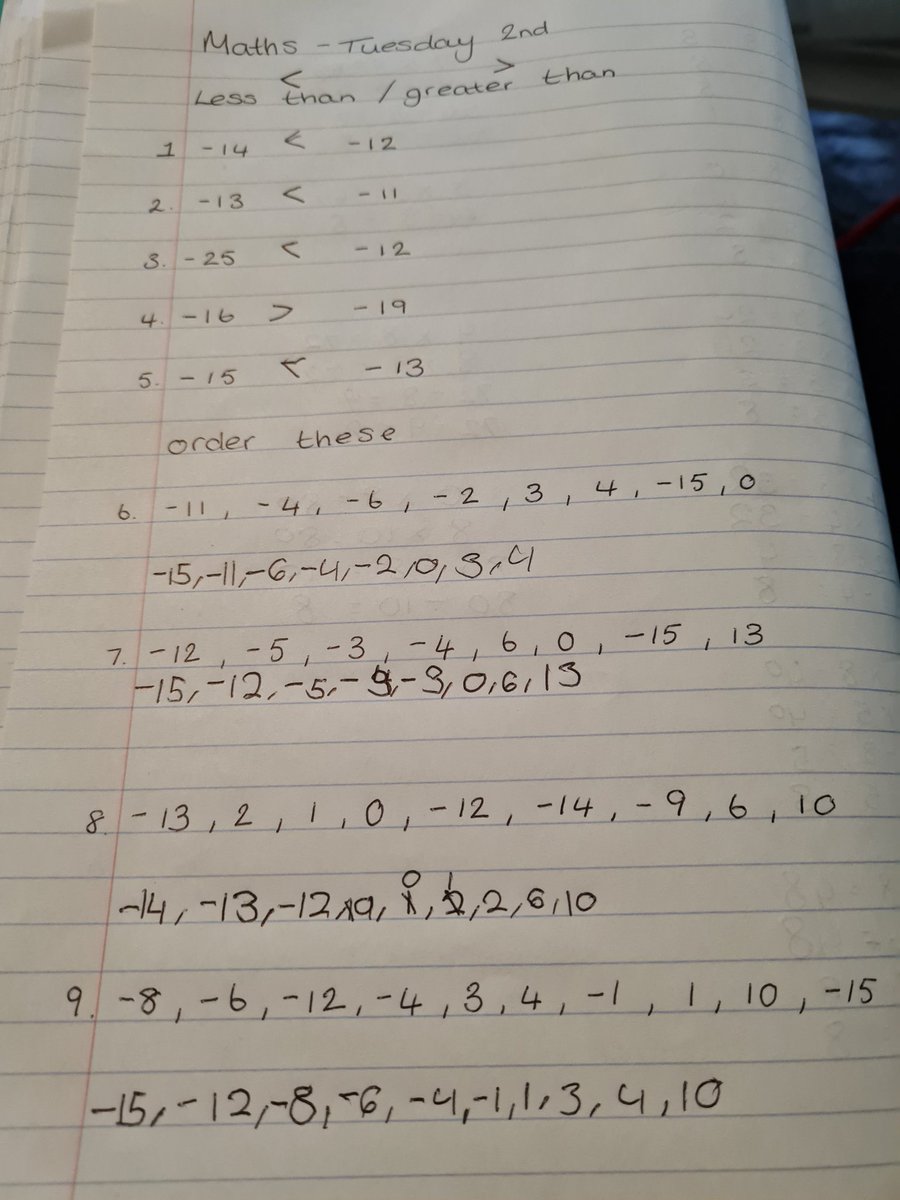 Maths - Tuesday 2nd
< >
Less than / greater than
1 -14 < -12
2. -13 < -11
3. -25 < -12
4. -16 > -19
5. -15 < -13
order these
6. -11, -4, -6, -2, 3, 4, -15, 0
-15, -11, -6, -4, -2, 0, 3, 4
7. -12, -5, -3, -4, 6, 0, -15, 13
-15, -12, -5, -4, -3, 0, 6, 13
8. -13, 2, 1, 0, -12, -14, -9, 6, 10
-14, -13, -12, -9, 0, 1, 2, 6, 10
9. -8, -6, -12, -4, 3, 4, -1, 1, 10, -15
-15, -12, -8, -6, -4, -1, 1, 3, 4, 10